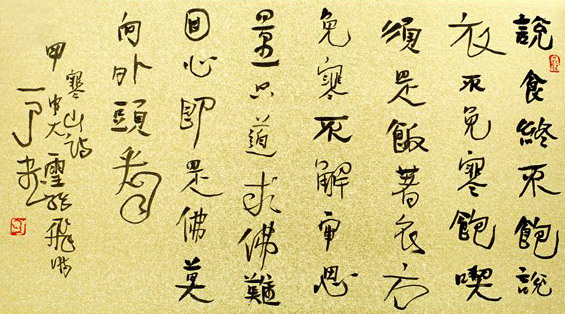 說食終不飽說
衣不免寒飽喫
須是飯著衣方
免寒不解審思
量只道求佛難
回心即是佛莫
向外頭看
寒山詩
甲申大雪紛飛時
一了書